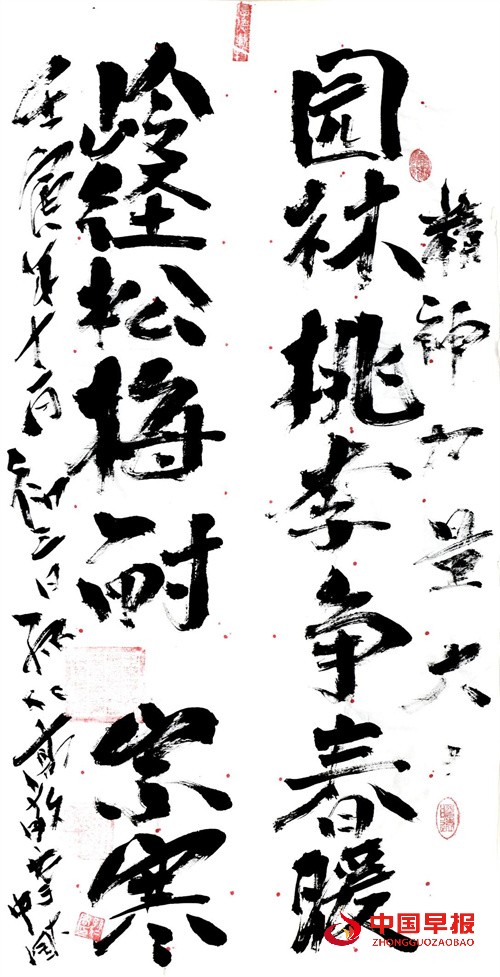 精神力量大
园林桃李争春暖
岭径松梅耐寒
壬寅年十月初三日敬书
中国早报
ZHONGGUOZAOBAO